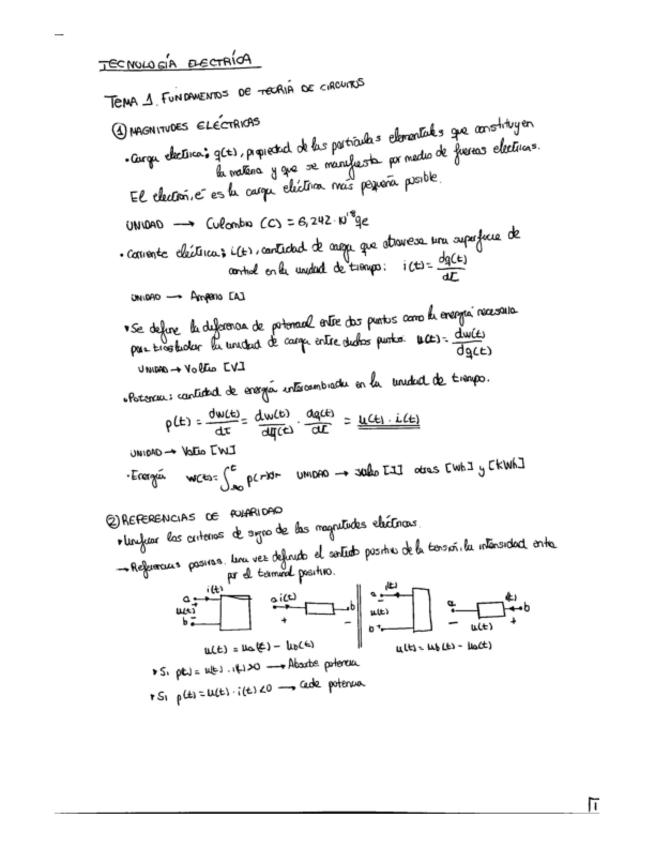 TECNOLOGÍA ELECTRÍCA
TEMA 1. FUNDAMENTOS DE TEORÍA DE CIRCUITOS
① MAGNITUDES ELÉCTRICAS
• Carga eléctrica: q(t), propiedad de las partículas elementales que constituyen
la materia y que se manifiesta por medio de fuerzas eléctricas.
El electrón, e⁻ es la carga eléctrica más pequeña posible.
UNIDAD → Culombio (C) = 6,242 · 10¹⁸ qe
• Corriente eléctrica: i(t), cantidad de carga que atraviesa una superficie de
control en la unidad de tiempo: i(t) = dq(t)/dt
UNIDAD → Amperio [A]
• Se define la diferencia de potencial entre dos puntos como la energía necesaria
para trasladar la unidad de carga entre dichos puntos. u(t) = dw(t)/dq(t)
UNIDAD → Voltio [V]
• Potencia: cantidad de energía intercambiada en la unidad de tiempo.
p(t) = dw(t)/dt = dw(t)/dq(t) · dq(t)/dt = u(t) · i(t)
UNIDAD → Vatio [W]
• Energía w(t) = ∫ p(τ)dτ UNIDAD → Julio [J] otras [Wh] y [kWh]
② REFERENCIAS DE POLARIDAD
• Unificar los criterios de signo de las magnitudes eléctricas.
→ Referencias positivas. Una vez definido el sentido positivo de la tensión, la intensidad entra
por el terminal positivo.
i(t) i(t)
a + a i(t) b a − a i(t) b
u(t) u(t)
b − + − b + − u(t) +
u(t) = ua(t) − ub(t) u(t) = ub(t) − ua(t)
• Si p(t) = u(t) · i(t) > 0 → Absorbe potencia
• Si p(t) = u(t) · i(t) < 0 → Cede potencia
1